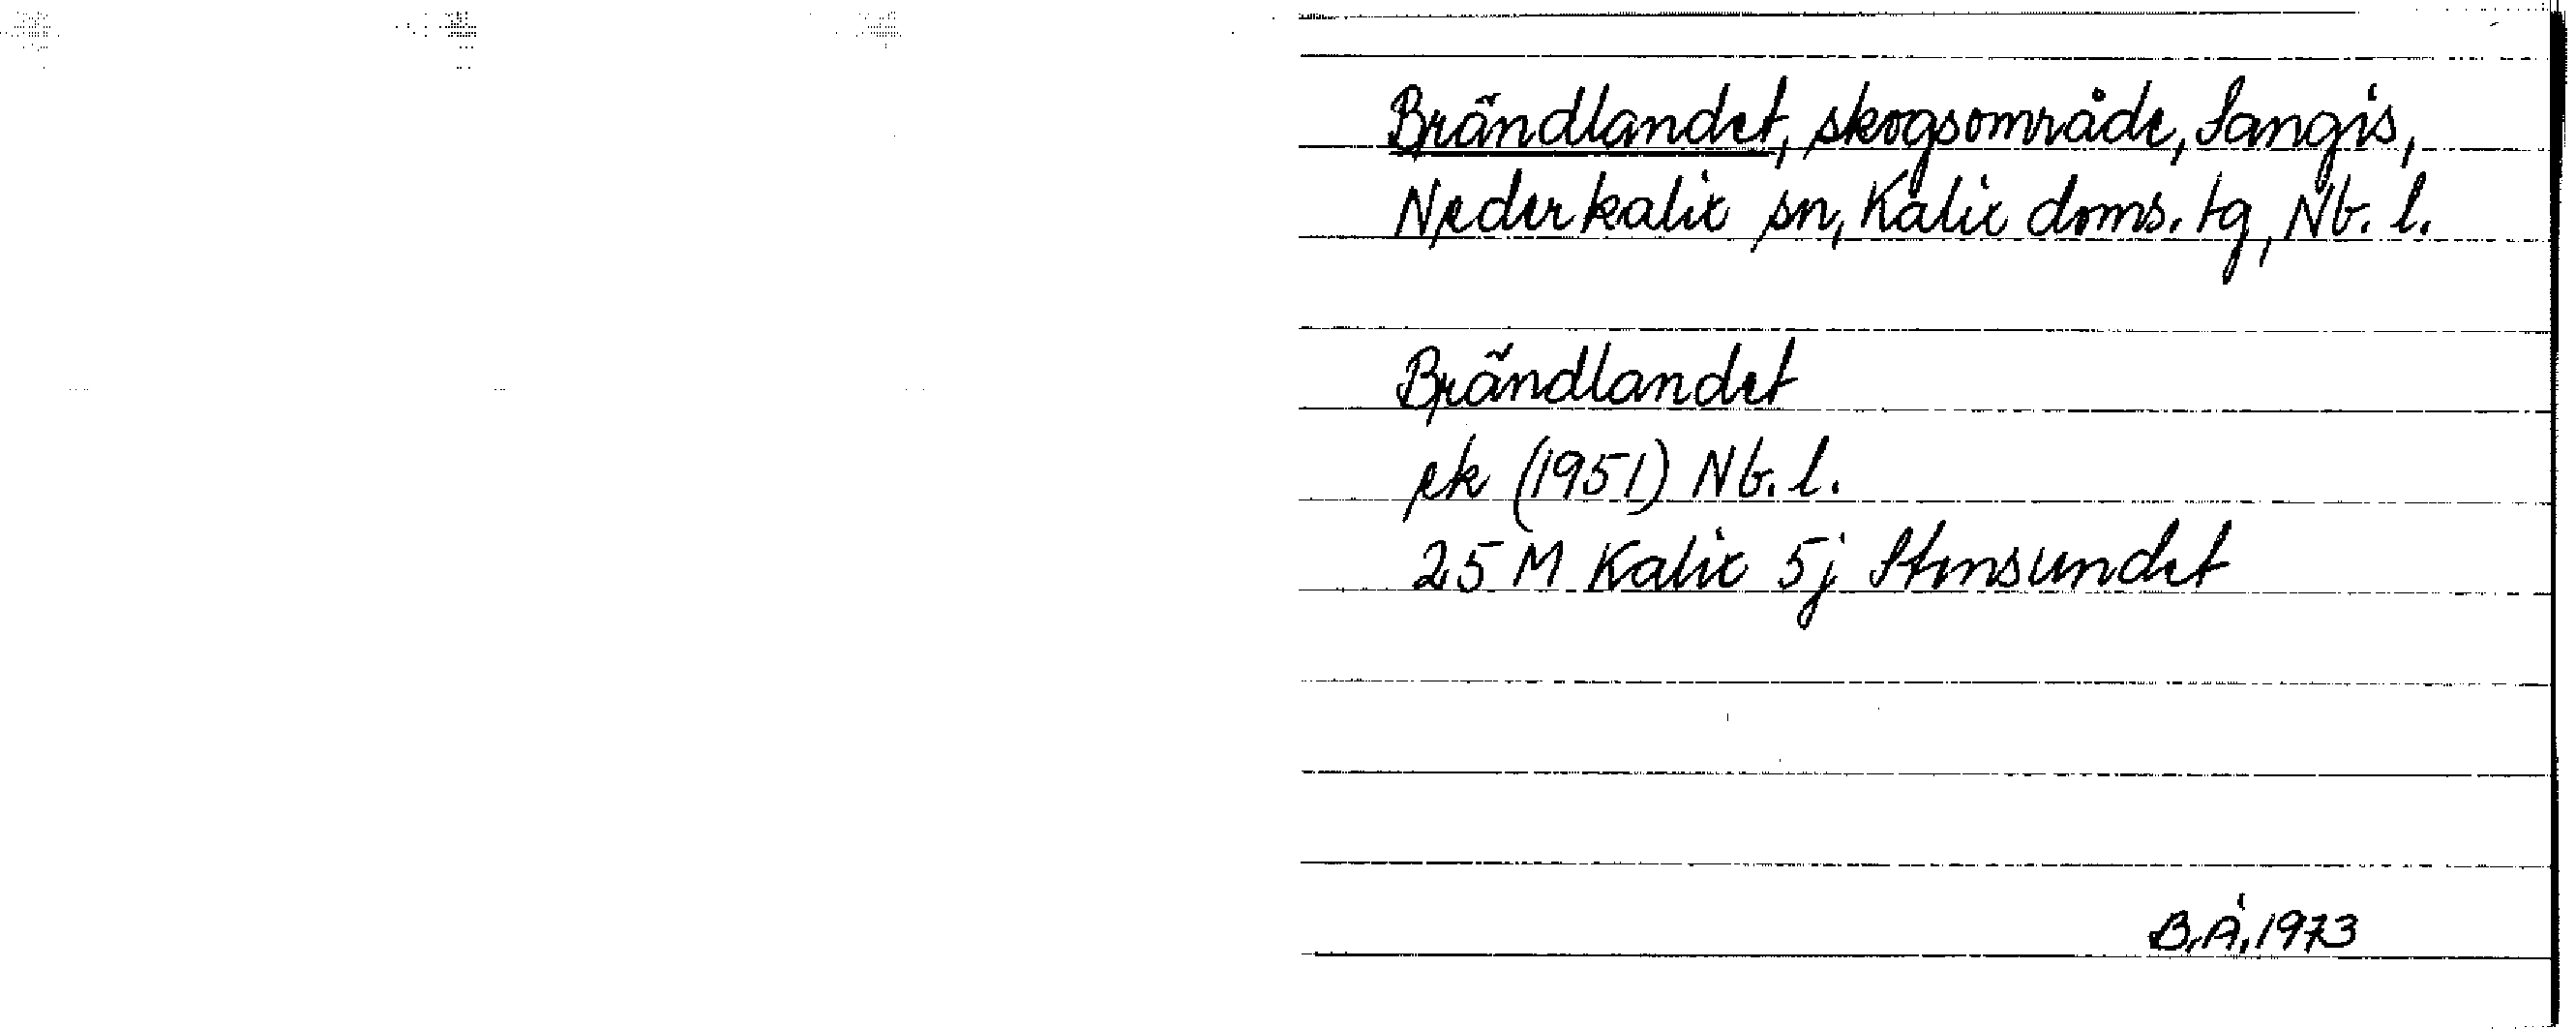 Brändlandet, skogsområde, Sangis,
Nederkalix sn, Kalix doms. tg, Nb. l.
Brändlandet
ek (1951) Nb. l.
25 M Kalix 5j Stensundet
B.Å. 1973